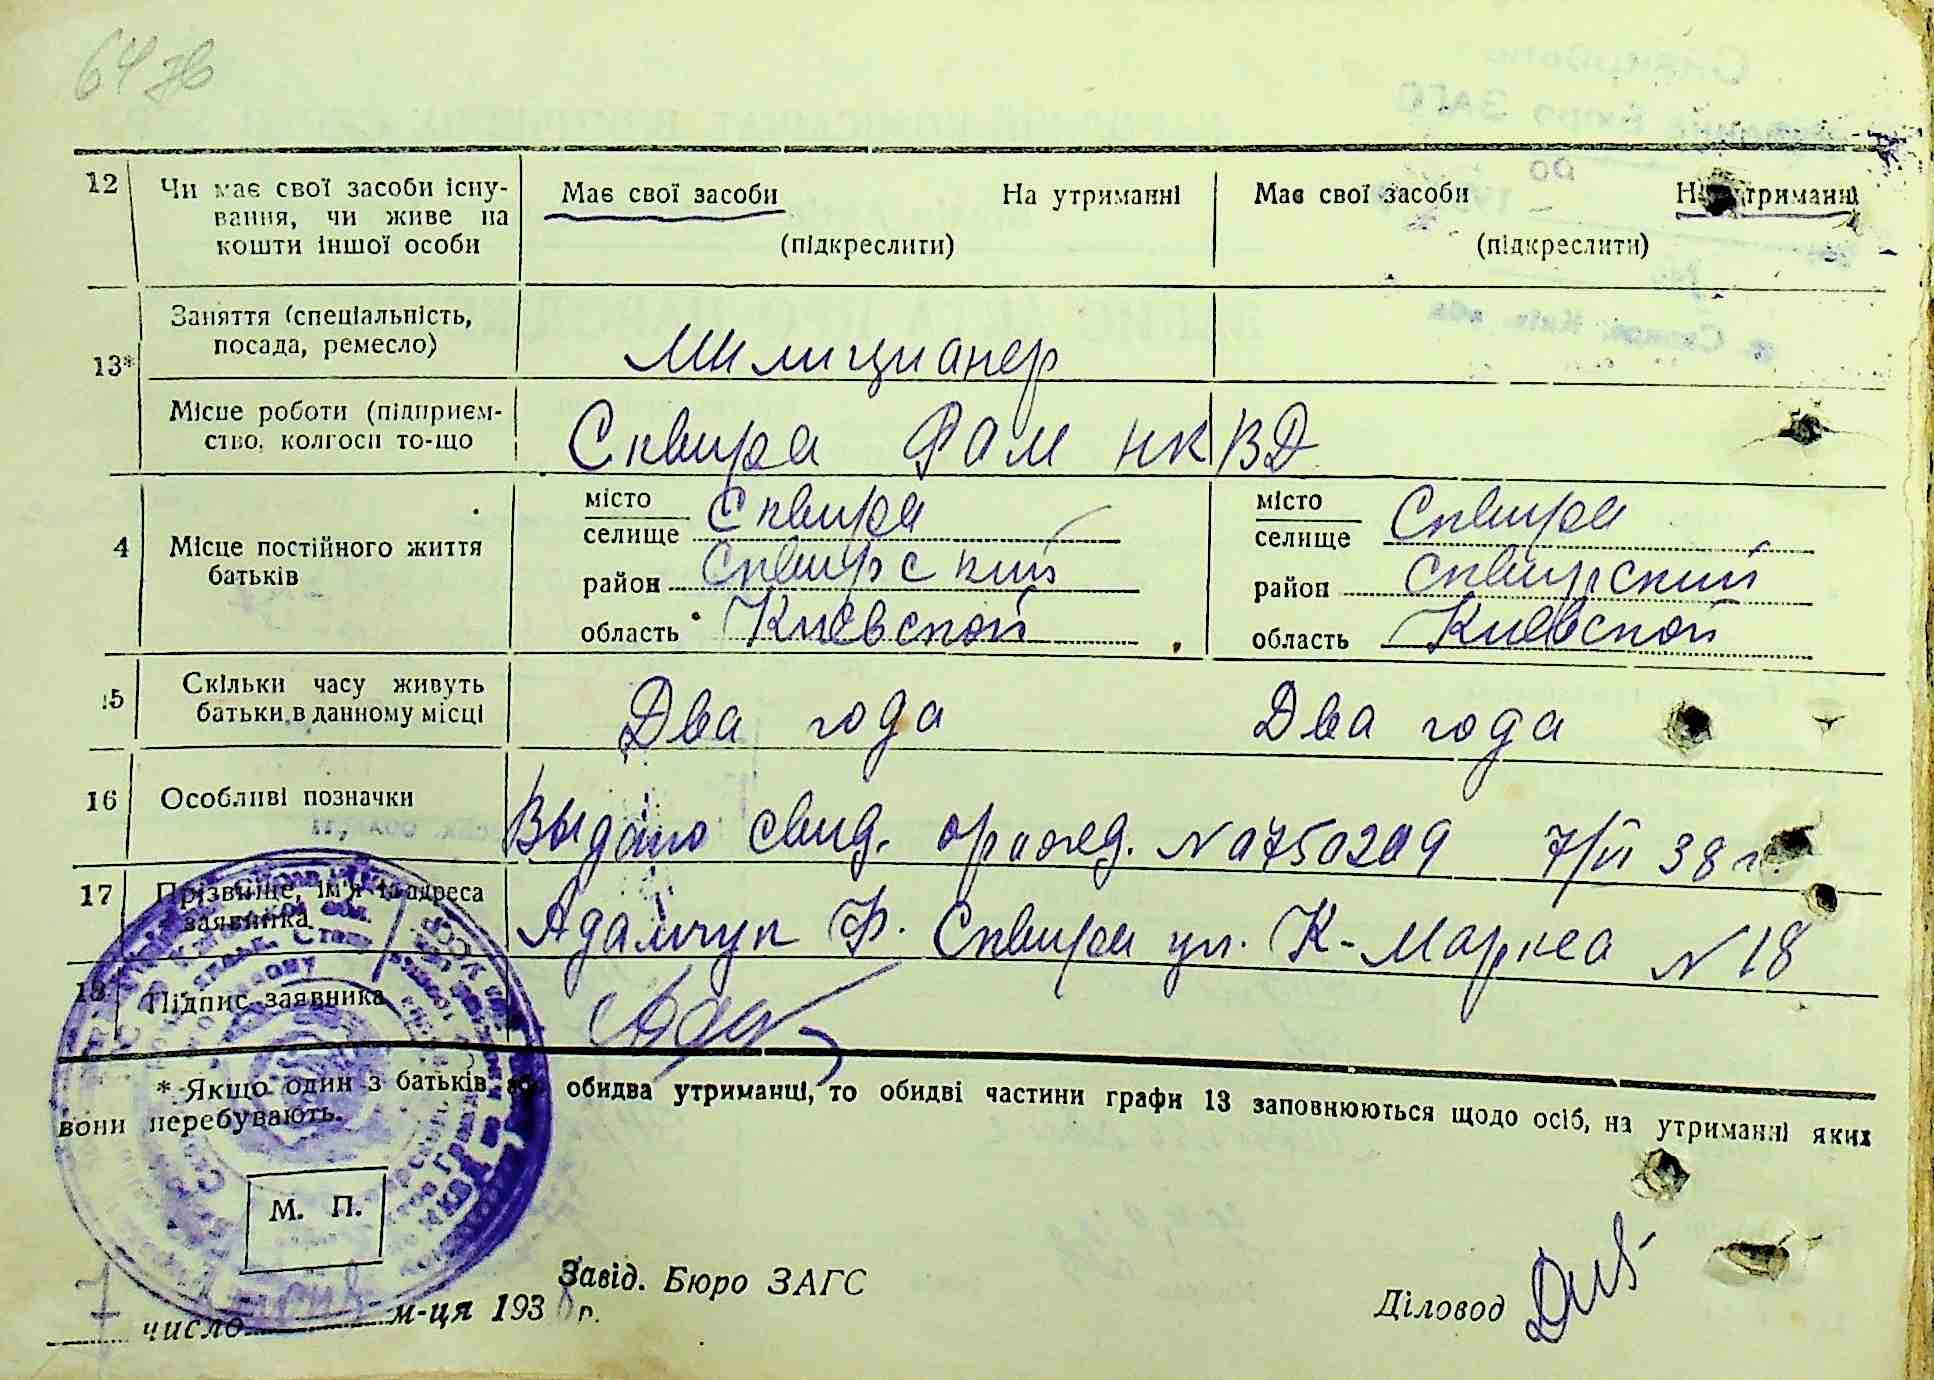 64 зв
12 Чи має свої засоби існу- Має свої засоби На утриманні Має свої засоби На утриманні
вання, чи живе на
кошти іншої особи (підкреслити) (підкреслити)
Заняття (спеціальність,
13* посада, ремесло) Милицианер
Місце роботи (підприєм-
ство, колгосп то-що Сквира НКВД
4 Місце постійного життя батьків
місто Сквира місто Сквира
селище селище
район Сквирский район Сквирский
область Киевской область Киевской
15 Скільки часу живуть
батьки в данному місці Два года Два года
16 Особливі позначки Выдано свид. о рожд. №
38 г.
17 Прізвище, ім'я та адреса
заявника Адамчук Ф. Сквира ул. К-Маркса № 18
18 Підпис заявника
* Якщо один з батьків або обидва утриманці, то обидві частини графи 13 заповнюються щодо осіб, на утриманні яких
вони перебувають.
М. П.
Завід. Бюро ЗАГС
7 число м-ця 1938 р.
Діловод